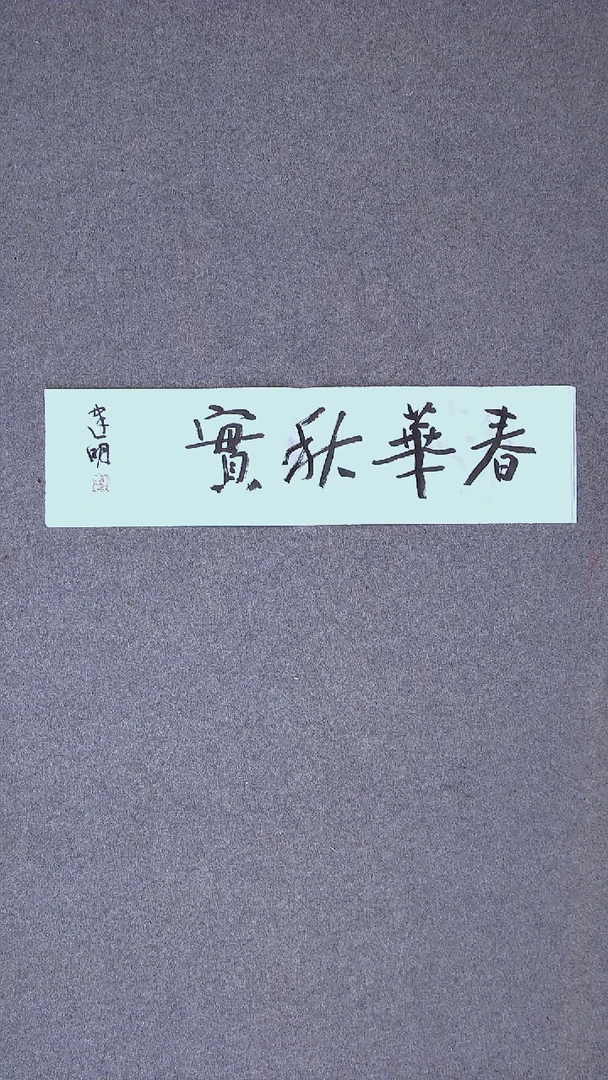 春華秋實
達明